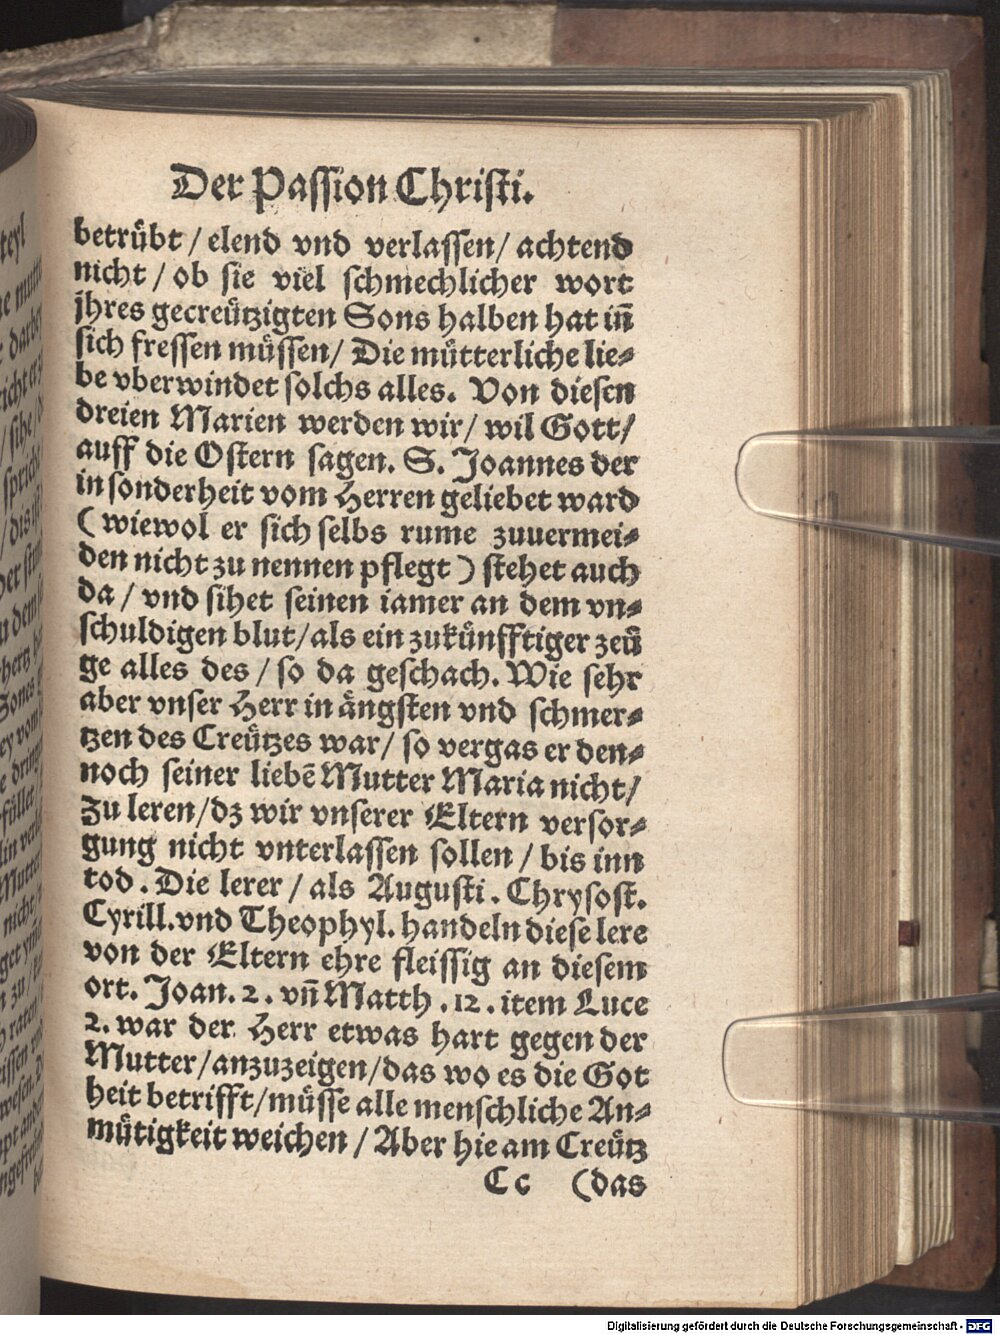 Der Passion Christi.
betrübt / elend vnd verlassen / achtend
nicht / ob sie viel schmechlicher wort
jhres gecreützigten Sons halben hat iñ
sich fressen müssen / Die mütterliche lie-
be vberwindet solchs alles. Von diesen
dreien Marien werden wir / wil Gott /
auff die Ostern sagen. S. Joannes der
in sonderheit vom Herren geliebet ward
( wiewol er sich selbs rume zuuermei-
den nicht zu nennen pflegt ) stehet auch
da / vnd sihet seinen iamer an dem vn-
schuldigen blut / als ein zukünfftiger zeü
ge alles des / so da geschach. Wie sehr
aber vnser Herr in ängsten vnd schmer-
tzen des Creützes war / so vergas er den-
noch seiner liebē Mutter Maria nicht /
Zu leren / dz wir vnserer Eltern versor-
gung nicht vnterlassen sollen / bis inn
tod . Die lerer / als Augusti . Chrysost.
Cyrill. vnd Theophyl. handeln diese lere
von der Eltern ehre fleissig an diesem
ort. Joan. 2 . vñ Matth . 12 . item Luce
2. war der Herr etwas hart gegen der
Mutter / anzuzeigen / das wo es die Got
heit betrifft / müsse alle menschliche An-
mütigkeit weichen / Aber hie am Creütz
Cc (das
Digitalisierung gefördert durch die Deutsche Forschungsgemeinschaft - DFG